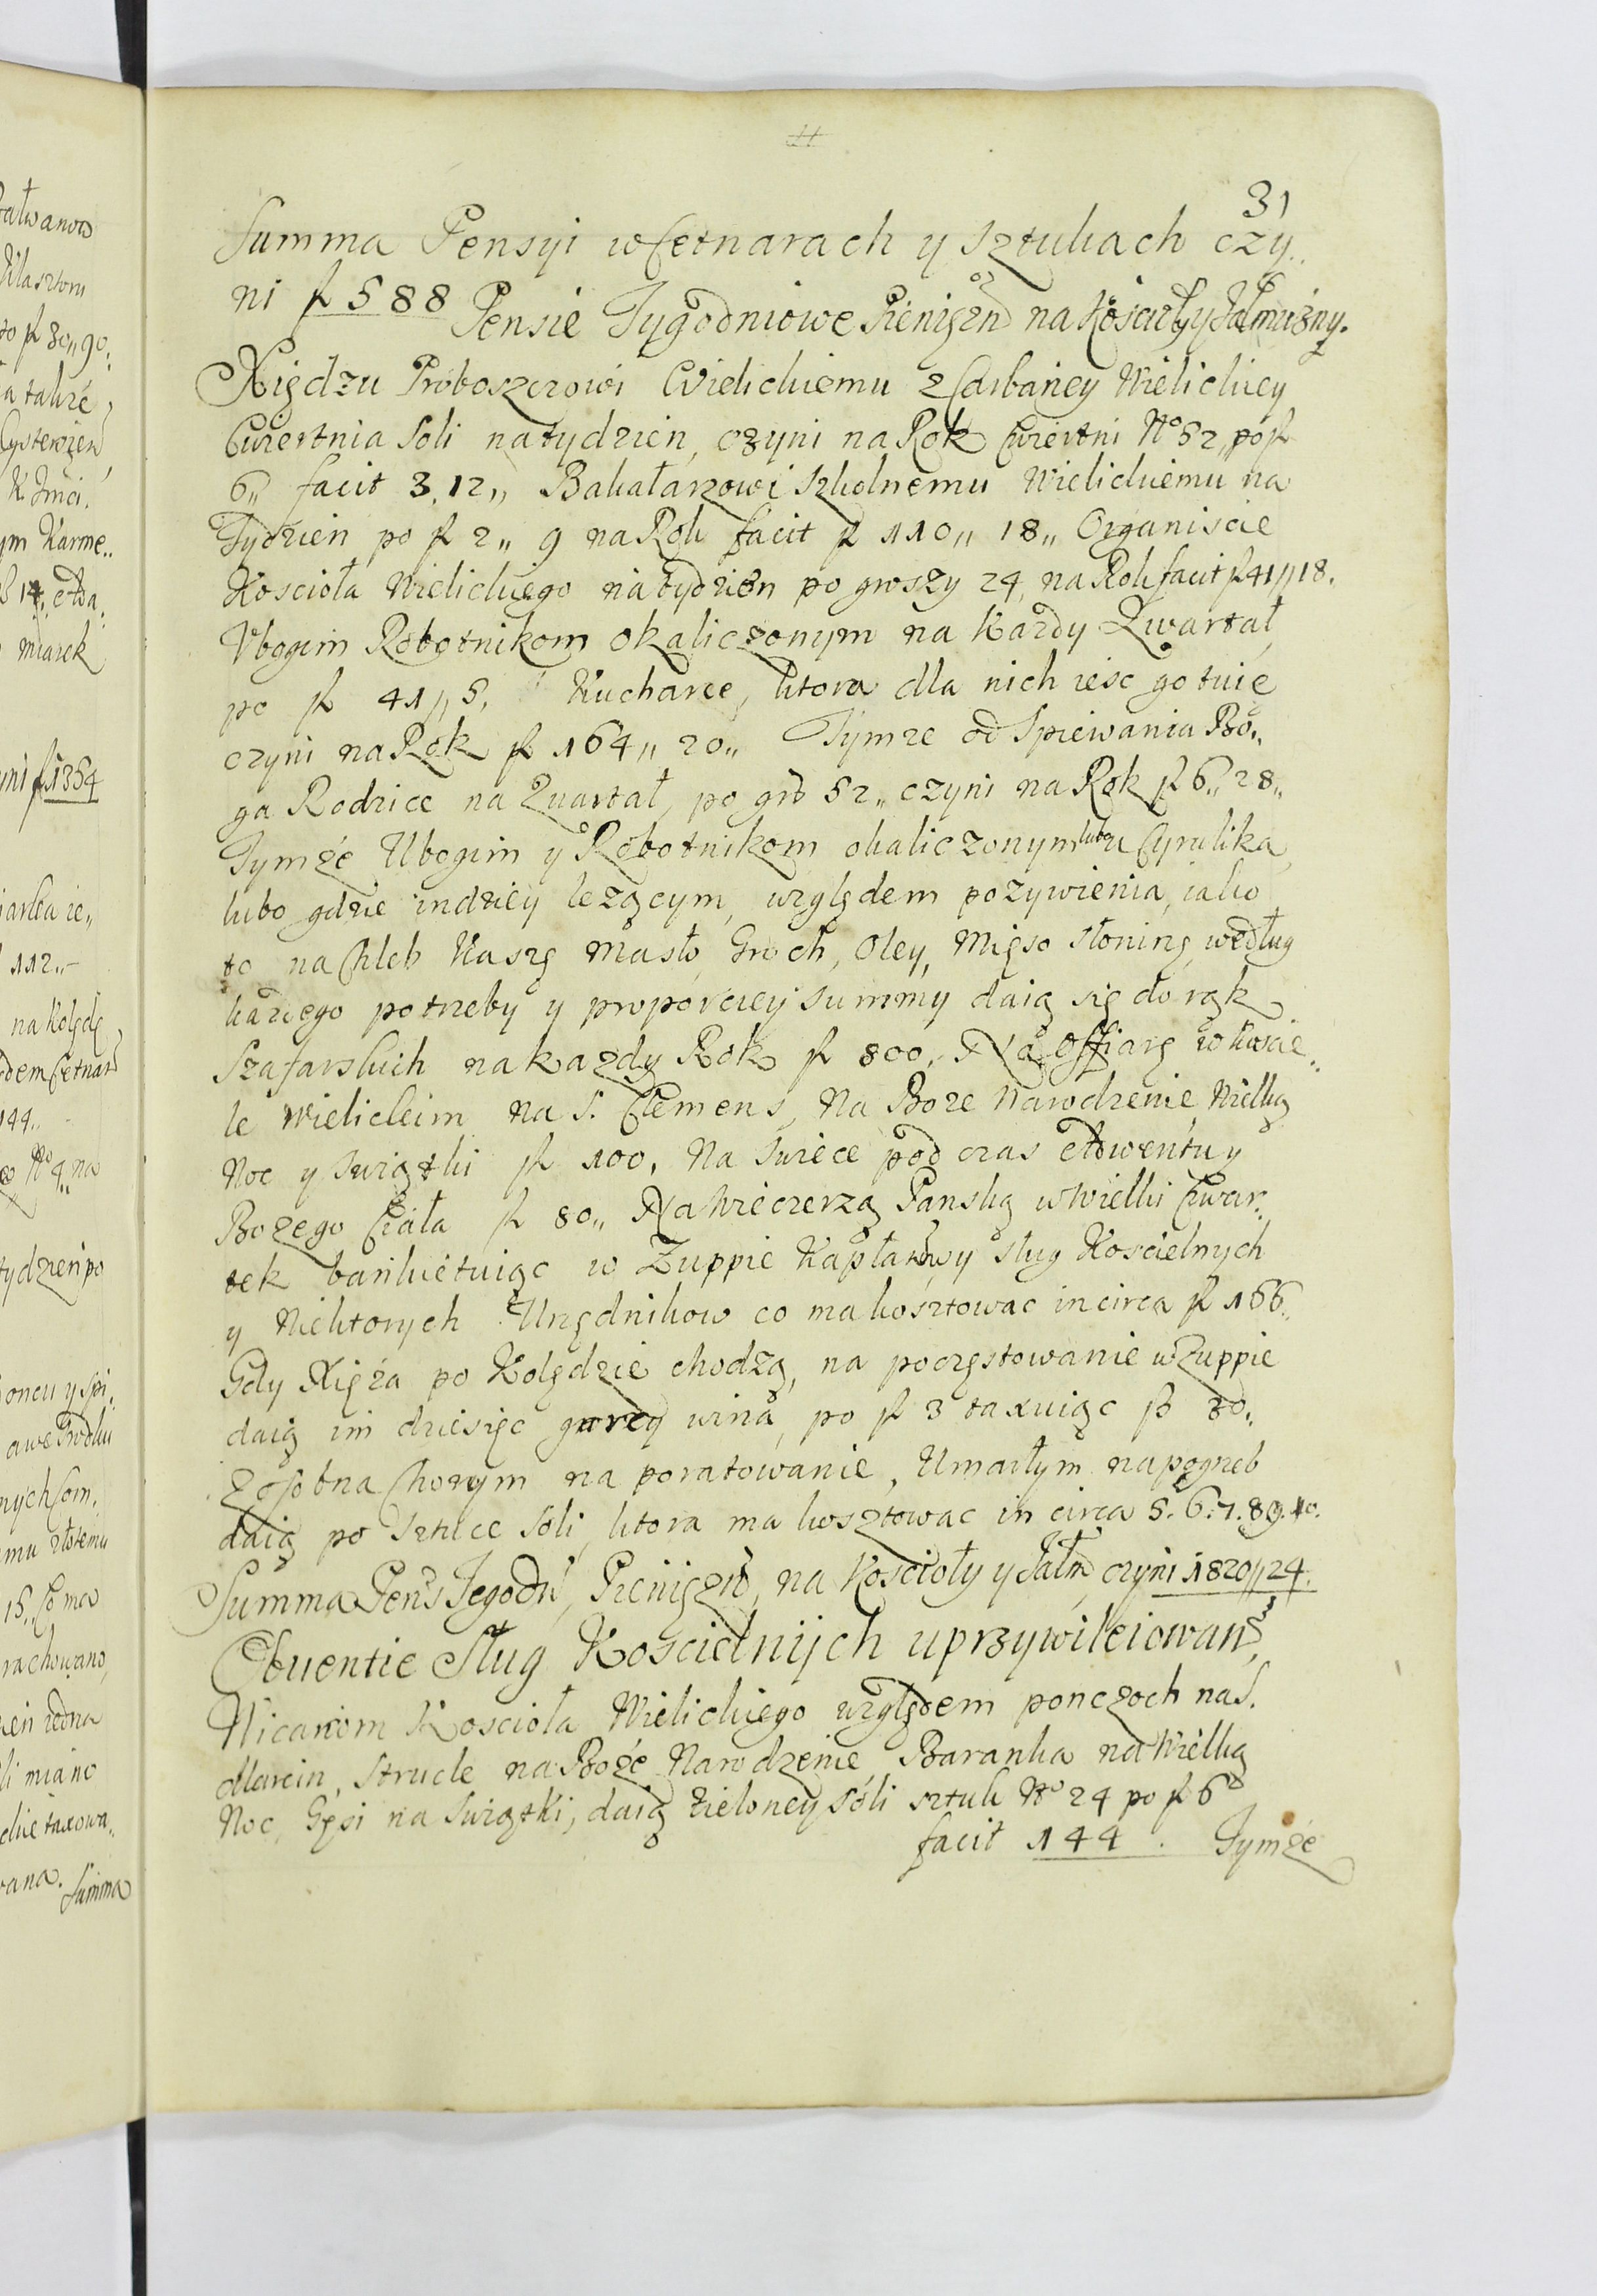 31
Summa Pensyi w Cetnarach y Sztukach czy„
ni ƒ 588
Pensie Tygodniowe Pieniężn na Kościoły y Jałmużny.
Xiędzu Proboszczowi Wielickiemu z Carbaney Wielickiey
Cwiertnia Soli na tydzien, czyni na Rok Cwiertni No 52, po ƒ
6„ facit 3,12„ Bakałarzowi Szkolnemu Wielickiemu na
Tydzien po ƒ 2„ 9 na Rok facit ƒ 110„ 18„ Organiscie
Koscioła Wielickiego na tydzien po groszy 24, na Rok facit ƒ 41„18.
Vbogim Robotnikom okaliczonym na Kazdy Qwartał,
po ƒ 41„5, Kucharce, ktora dla nich iesc gotuie
czyni na Rok ƒ 164„ 20„ Tymze od Spiewania Bo„
ga Rodzice na Quartał, po gr 52„ czyni na Rok ƒ 6„ 28„
Tymże Ubogim y Robotnikom okaliczonym lubo u Cyrulika
lubo gdzie indziey lezącym, względem pozywienia, iako
to na Chleb Kaszę Masło, Groch, Oley, Mięso Słoninę, według
kazdego potrzeby y proporcyey summy daią się do rąk
Szafarskich na kazdy Rok ƒ 800, Na Offiarę w Koscie„
le Wielickim na S. Clemens, Na Boze Narodzenie Wielką
Noc y Swiątki ƒ 100, Na Swiece pod czas Adwentu y
Bozego Ciała ƒ 80„ Na Wieczerzą Panską w Wielki Czwar„
tek bankietuiąc w Zuppie Kapłanow y Sług Koscielnych
y Niektorych Urzędnikow co ma kosztowac in circa ƒ 166.
Gdy Xięża po Kolędzie chodzą, na poczęstowanie w Zuppie
daią im dziesięc garcy wina, po ƒ 3 taxuiąc ƒ 30„
Zosobna Chorym na poratowanie, Umarłym na pogrzeb
daią po Sztuce Soli, ktora ma kosztowac in circa 5. 6. 7. 8. 9. 10.
Summa Pens Tegodn, Pieniężn, na Koscioły y Jałm, czyni 1820„24.
Obuentie Sług Koscielnych uprzywileiowan,
Wicarióm Koscioła Wielickiego względem ponczoch na S.
Marcin, Strucle na Boże Narodzenie, Baranka na Wielką
Noc, Gęsi na Swiątki, daią Zieloney Soli sztuk No 24 po ƒ 6
facit 144. Tymże